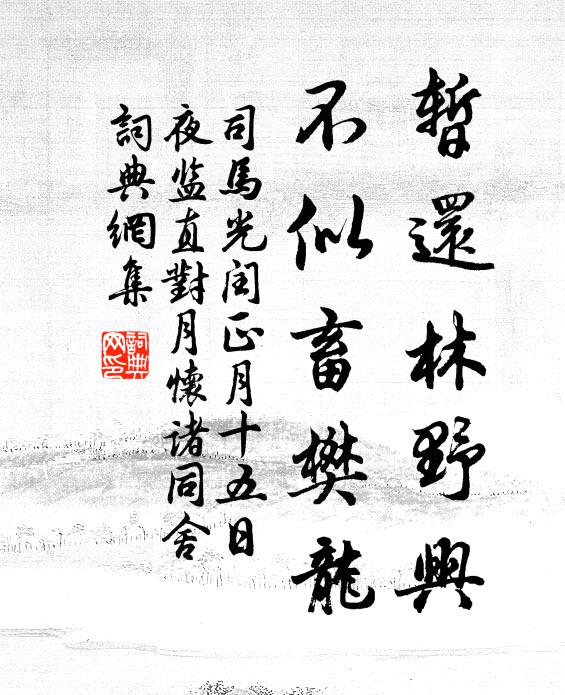 暫還林野興
不似畜樊龍
司馬光闰正月十五日
夜监直對月懷诸同舍
詞典網集
詞典
网印